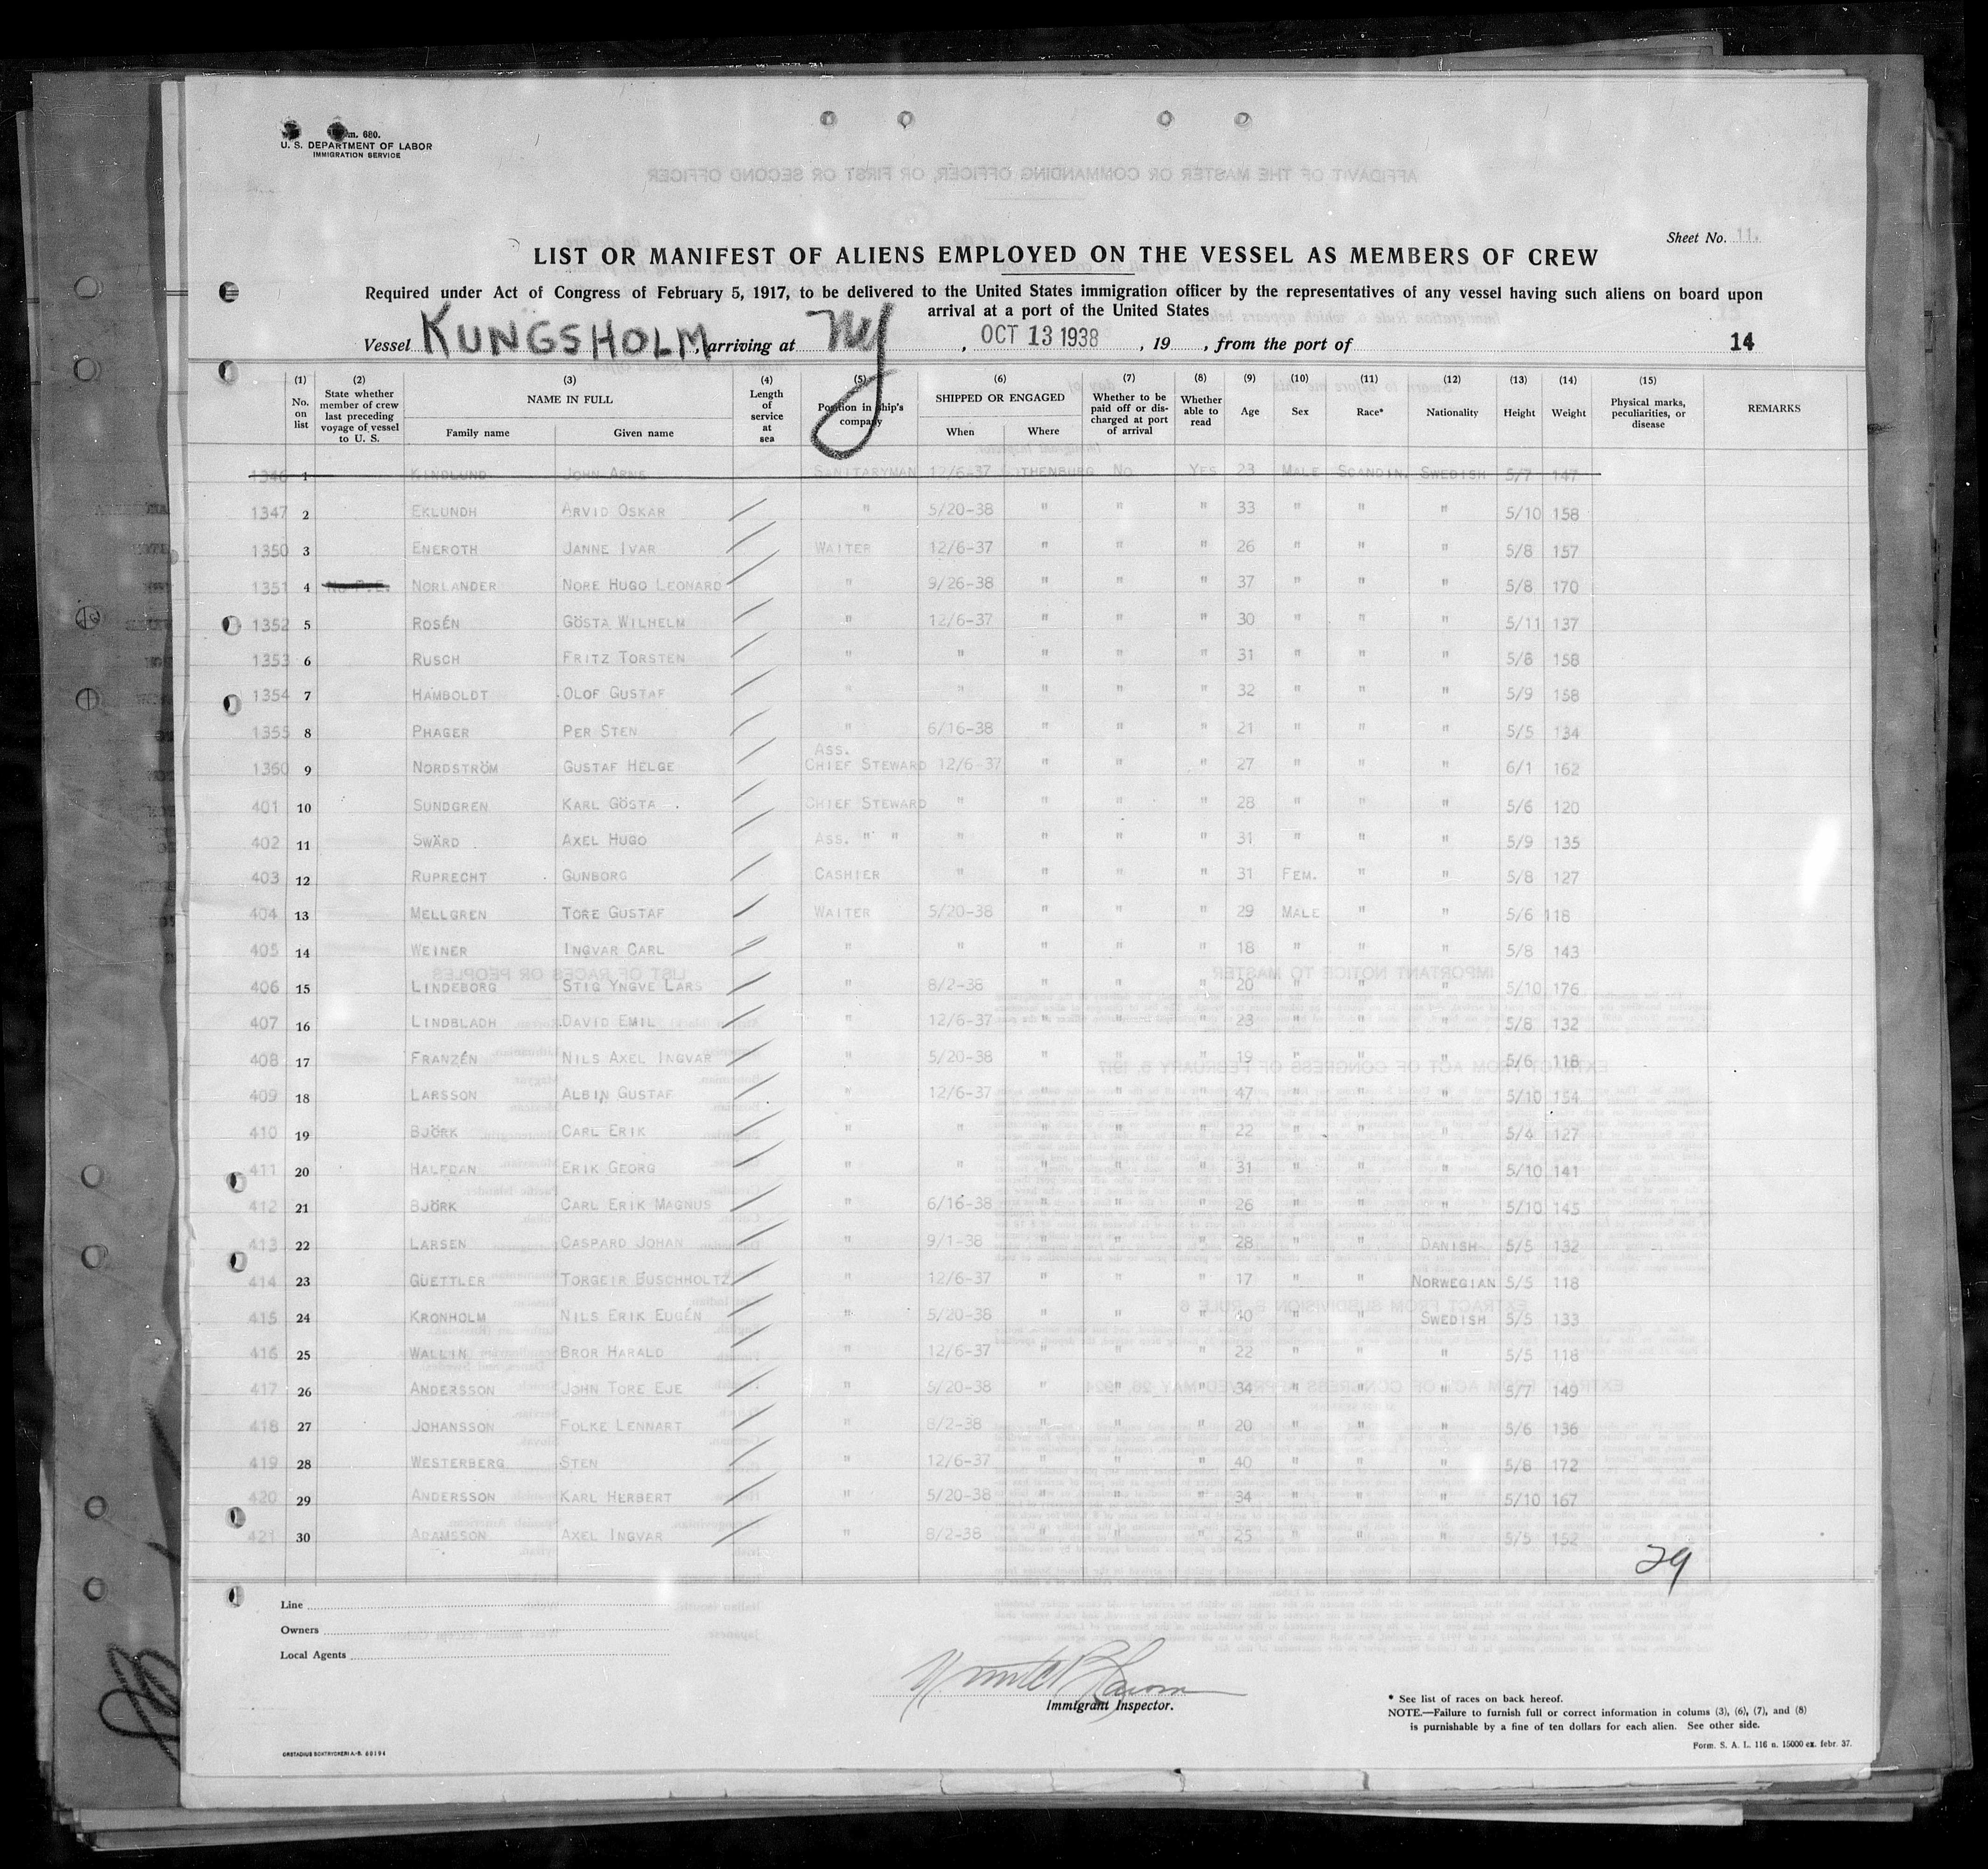 Form. 680.
U. S. DEPARTMENT OF LABOR
IMMIGRATION SERVICE
Sheet No. 11.
LIST OR MANIFEST OF ALIENS EMPLOYED ON THE VESSEL AS MEMBERS OF CREW
Required under Act of Congress of February 5, 1917, to be delivered to the United States immigration officer by the representatives of any vessel having such aliens on board upon
arrival at a port of the United States
Vessel KUNGSHOLM, arriving at NY, OCT 13 1938, 19, from the port of 14
(1) No. on list (2) State whether member of crew last preceding voyage of vessel to U. S. (3) NAME IN FULL Family name Given name (4) Length of service at sea (5) Position in ship's company (6) SHIPPED OR ENGAGED When Where (7) Whether to be paid off or discharged at port of arrival (8) Whether able to read (9) Age (10) Sex (11) Race* (12) Nationality (13) Height (14) Weight (15) Physical marks, peculiarities, or disease REMARKS
1346 1 KINDLUND JOHN ARNE SANITARYMAN 12/6-37 GOTHENBURG NO YES 23 MALE SCANDIN. SWEDISH 5/7 147
1347 2 EKLUNDH ARVID OSKAR " 5/20-38 " " " 33 " " " 5/10 158
1350 3 ENEROTH JANNE IVAR WAITER 12/6-37 " " " 26 " " " 5/8 157
1351 4 NORLANDER NORE HUGO LEONARD " 9/26-38 " " " 37 " " " 5/8 170
1352 5 ROSÉN GÖSTA WILHELM " 12/6-37 " " " 30 " " " 5/11 137
1353 6 RUSCH FRITZ TORSTEN " " " " " 31 " " " 5/8 158
1354 7 HAMBOLDT OLOF GUSTAF " " " " " 32 " " " 5/9 158
1355 8 PHAGER PER STEN " 6/16-38 " " " 21 " " " 5/5 134
1360 9 NORDSTRÖM GUSTAF HELGE ASS. CHIEF STEWARD 12/6-37 " " " 27 " " " 6/1 162
401 10 SUNDGREN KARL GÖSTA CHIEF STEWARD " " " " 28 " " " 5/6 120
402 11 SWÄRD AXEL HUGO ASS. " " " " " " 31 " " " 5/9 135
403 12 RUPRECHT GUNBORG CASHIER " " " " 31 FEM. " " 5/8 127
404 13 MELLGREN TORE GUSTAF WAITER 5/20-38 " " " 29 MALE " " 5/6 118
405 14 WEINER INGVAR CARL " " " " " 18 " " " 5/8 143
406 15 LINDEBORG STIG YNGVE LARS " 8/2-38 " " " 20 " " " 5/10 176
407 16 LINDBLADH DAVID EMIL " 12/6-37 " " " 23 " " " 5/8 132
408 17 FRANZÉN NILS AXEL INGVAR " 5/20-38 " " " 19 " " " 5/6 118
409 18 LARSSON ALBIN GUSTAF " 12/6-37 " " " 47 " " " 5/10 154
410 19 BJÖRK CARL ERIK " " " " " 22 " " " 5/4 127
411 20 HALFDAN ERIK GEORG " " " " " 31 " " " 5/10 141
412 21 BJÖRK CARL ERIK MAGNUS " 6/16-38 " " " 26 " " " 5/10 145
413 22 LARSEN CASPARD JOHAN " 9/1-38 " " " 28 " " DANISH 5/5 132
414 23 GUETTLER TORGEIR BUSCHHOLTZ " 12/6-37 " " " 17 " " NORWEGIAN 5/5 118
415 24 KRONHOLM NILS ERIK EUGÉN " 5/20-38 " " " 40 " " SWEDISH 5/5 133
416 25 WALLIN BROR HARALD " 12/6-37 " " " 22 " " " 5/5 118
417 26 ANDERSSON JOHN TORE EJE " 5/20-38 " " " 34 " " " 5/7 149
418 27 JOHANSSON FOLKE LENNART " 8/2-38 " " " 20 " " " 5/6 136
419 28 WESTERBERG STEN " 12/6-37 " " " 40 " " " 5/8 172
420 29 ANDERSSON KARL HERBERT " 5/20-38 " " " 34 " " " 5/10 167
421 30 ADAMSSON AXEL INGVAR " 8/2-38 " " " 25 " " " 5/5 152
29
Line
Owners
Local Agents
Immigrant Inspector.
* See list of races on back hereof.
NOTE.—Failure to furnish full or correct information in colums (3), (6), (7), and (8)
is punishable by a fine of ten dollars for each alien. See other side.
Form. S. A. L. 116 n. 15000 ex. febr. 37.